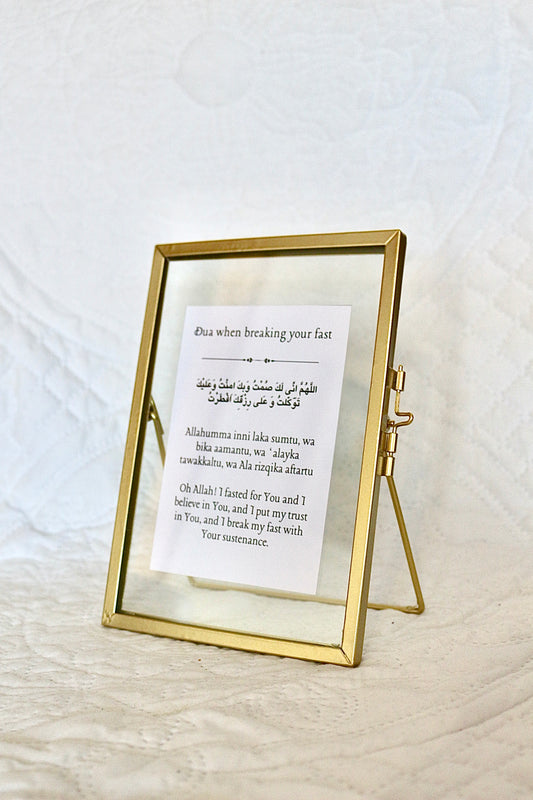 Dua when breaking your fast
اللَّهُمَّ اِنِّى لَكَ صُمْتُ وَبِكَ امنْتُ وَعَلَيْكَ
تَوَكَّلتُ وَ عَلى رِزْقِكَ اَفْطَرْتُ
Allahumma inni laka sumtu, wa
bika aamantu, wa ʿalayka
tawakkaltu, wa Ala rizqika aftartu
Oh Allah! I fasted for You and I
believe in You, and I put my trust
in You, and I break my fast with
Your sustenance.